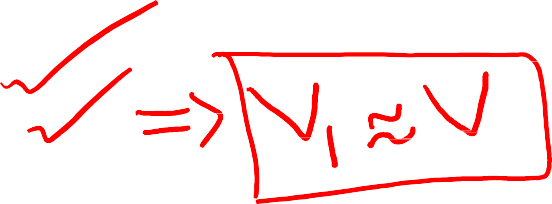 ✓
✓ ⇒ V₁ ≈ V